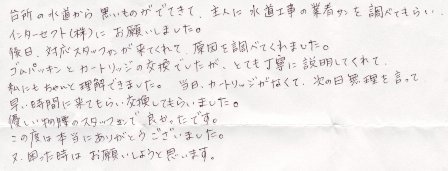 台所の水道から黒いものがでてきて、主人に水道工事の業者サンを調べてもらい、
インターセクト(株)にお願いしました。
後日、対応スタッフさんが来てくれて、原因を調べてくれました。
ゴムパッキンとカートリッジの交換でしたが、とても丁寧に説明してくれて、
私にもちゃんと理解できました。 当日、カートリッジがなくて、次の日無理を言って
早い時間に来てもらい交換してもらいました。
優しい物腰のスタッフさんで、良かったです。
この度は本当にありがとうございました。
又、困った時はお願いしようと思います。